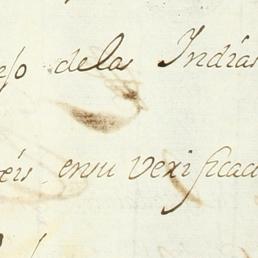 eso delas Indias
éis ensu verificac